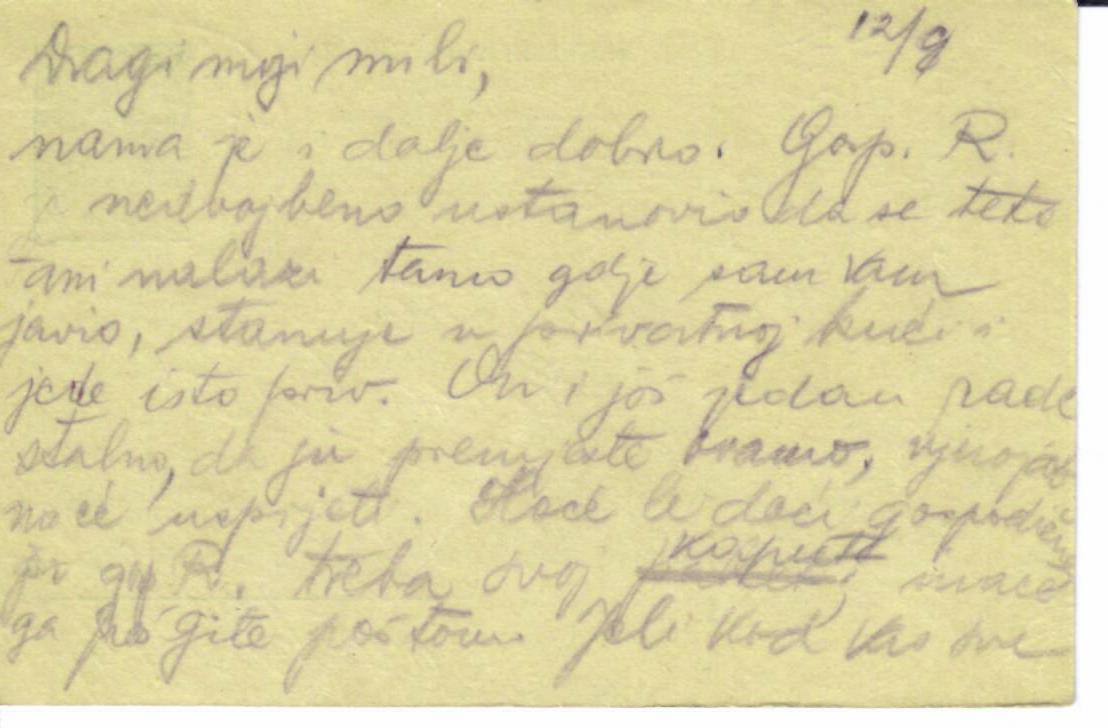 12/9
Dragi moji mili,
nama je i dalje dobro. Gosp. R.
je nedvojbeno ustanovio da se teta
nalazi tamo gdje sam Vam
javio, stanuje u privatnoj kući i
jede isto priv. On i još jedan rade
stalno, da ju premjeste ovamo, vjerojat
no će uspjeti. Hoće li doći gospodična
po gosp R. treba svoj kaput inače
ga poštom Jeli kod Vas sve